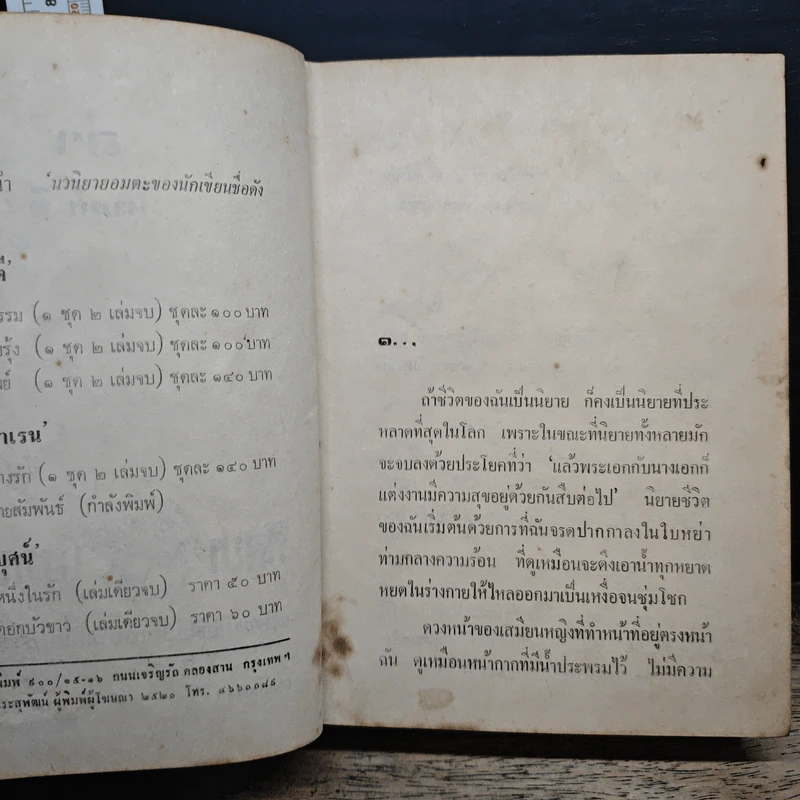 'นวนิยายอมตะของนักเขียนชื่อดัง
(๑ ชุด ๒ เล่มจบ) ชุดละ ๑๐๐ บาท
(๑ ชุด ๒ เล่มจบ) ชุดละ ๑๐๐ บาท
(๑ ชุด ๒ เล่มจบ) ชุดละ ๑๔๐ บาท
างรัก (๑ ชุด ๒ เล่มจบ) ชุดละ ๑๔๐ บาท
ายสัมพันธ์ (กำลังพิมพ์)
หนึ่งในรัก (เล่มเดียวจบ) ราคา ๕๐ บาท
ดอกบัวขาว (เล่มเดียวจบ) ราคา ๖๐ บาท
พิมพ์ ๙๐๐/๑๕-๑๖ ถนนเจริญรัถ คลองสาน กรุงเทพฯ
ระสุพัฒน์ ผู้พิมพ์ผู้โฆษณา ๒๕๒๑ โทร. ๔๖๖๐๐๘๙
๑...
ถ้าชีวิตของฉันเป็นนิยาย ก็คงเป็นนิยายที่ประ
หลาดที่สุดในโลก เพราะในขณะที่นิยายทั้งหลายมัก
จะจบลงด้วยประโยคที่ว่า 'แล้วพระเอกกับนางเอกก็
แต่งงานมีความสุขอยู่ด้วยกันสืบต่อไป' นิยายชีวิต
ของฉันเริ่มต้นด้วยการที่ฉันจรดปากกาลงในใบหย่า
ท่ามกลางความร้อน ที่ดูเหมือนจะดึงเอาน้ำทุกหยาด
หยดในร่างกายให้ไหลออกมาเป็นเหงื่อจนชุ่มโชก
ดวงหน้าของเสมียนหญิงที่ทำหน้าที่อยู่ตรงหน้า
ฉัน ดูเหมือนหน้ากากที่มีน้ำประพรมไว้ ไม่มีความ